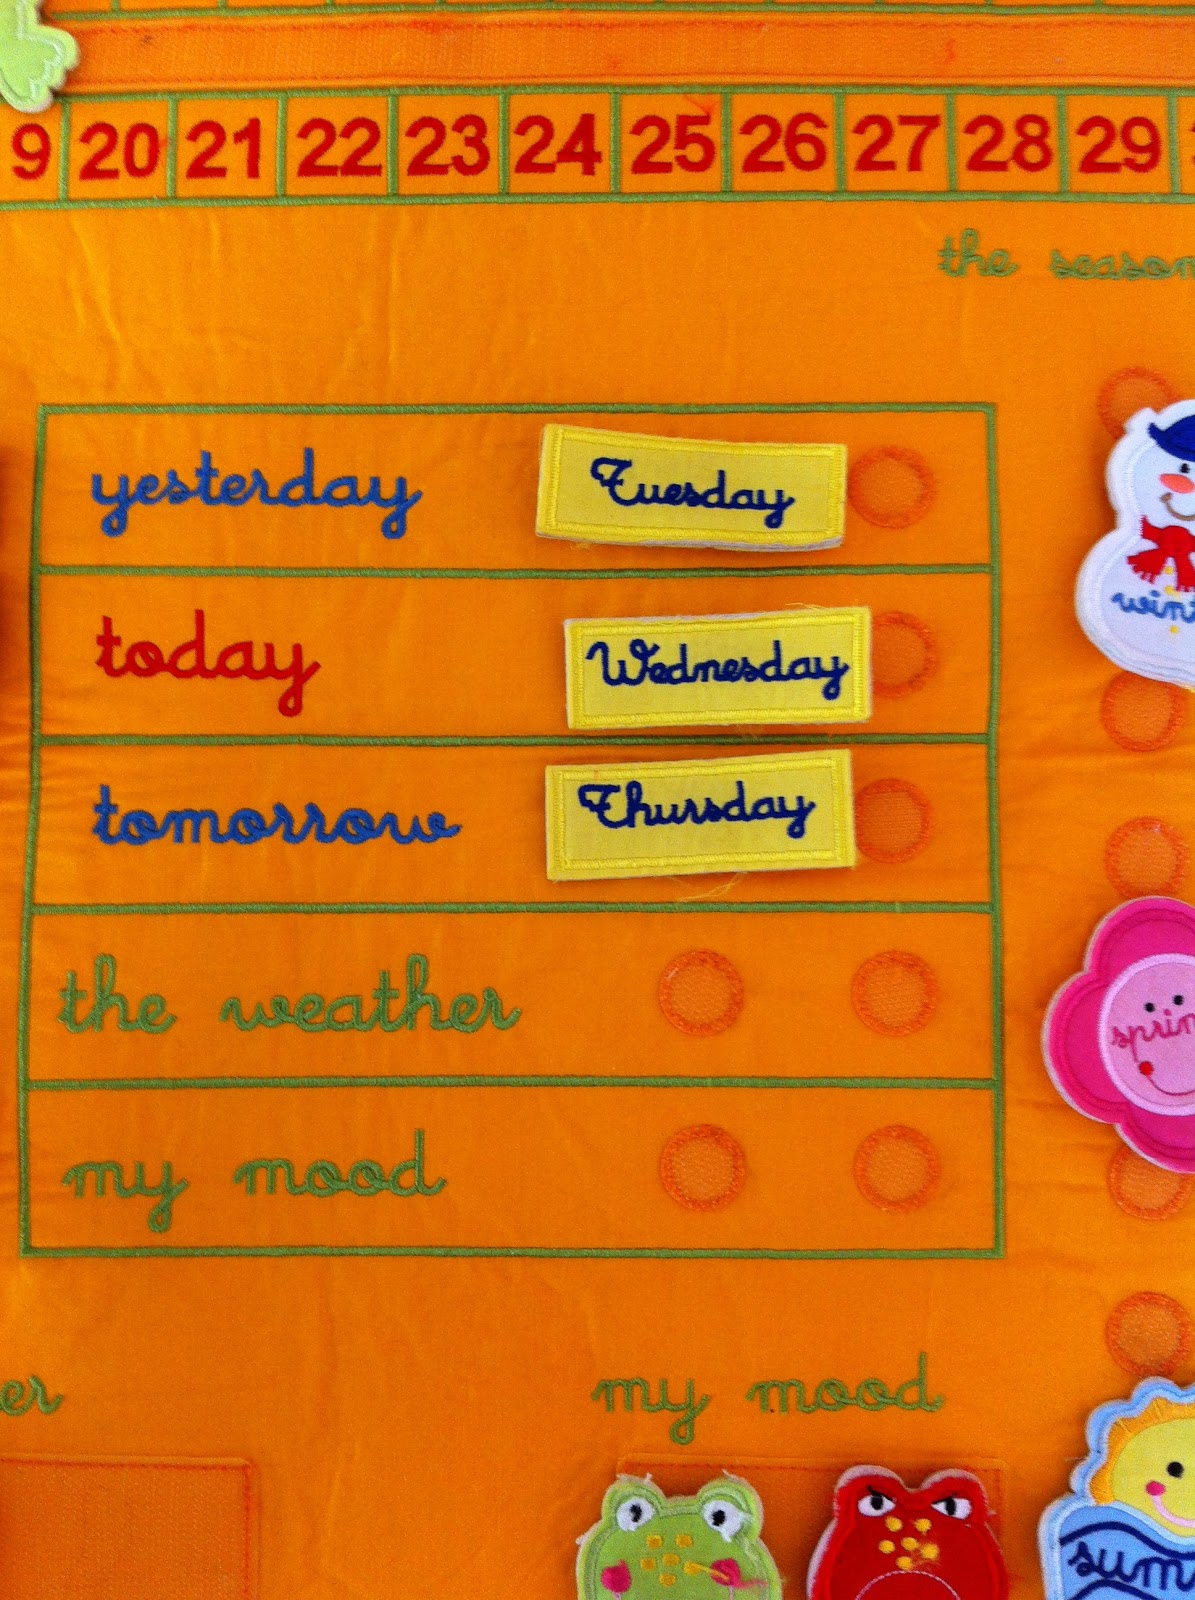 9 20 21 22 23 24 25 26 27 28 29
the season
yesterday Tuesday
today Wednesday
tomorrow Thursday
the weather
my mood
my mood